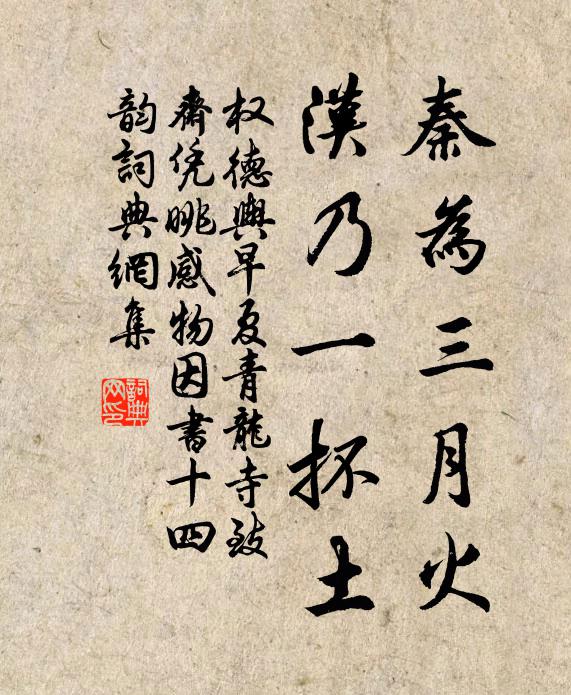 秦為三月火
漢乃一抔土
权德輿早夏青龍寺致
齋凭眺感物因書十四
韵詞典網集
詞典
网印